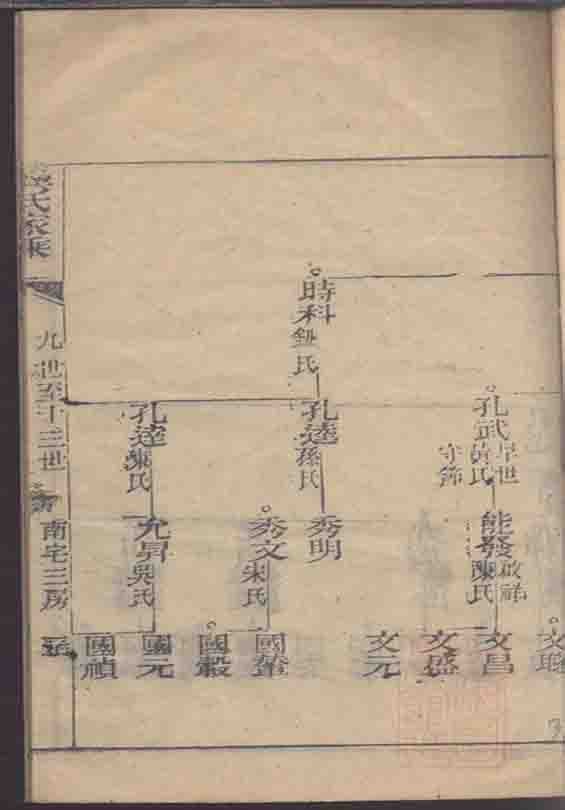 氏家乘
九世至十三世
南宅三房
時科
鈕氏
孔武
早世
黃氏
守節
孔達
孫氏
孔達
陳氏
能發
啟祥
陳氏
秀明
秀文
朱氏
允昇
吳氏
文聪
文昌
文盛
文元
國
國榖
國元
國禎